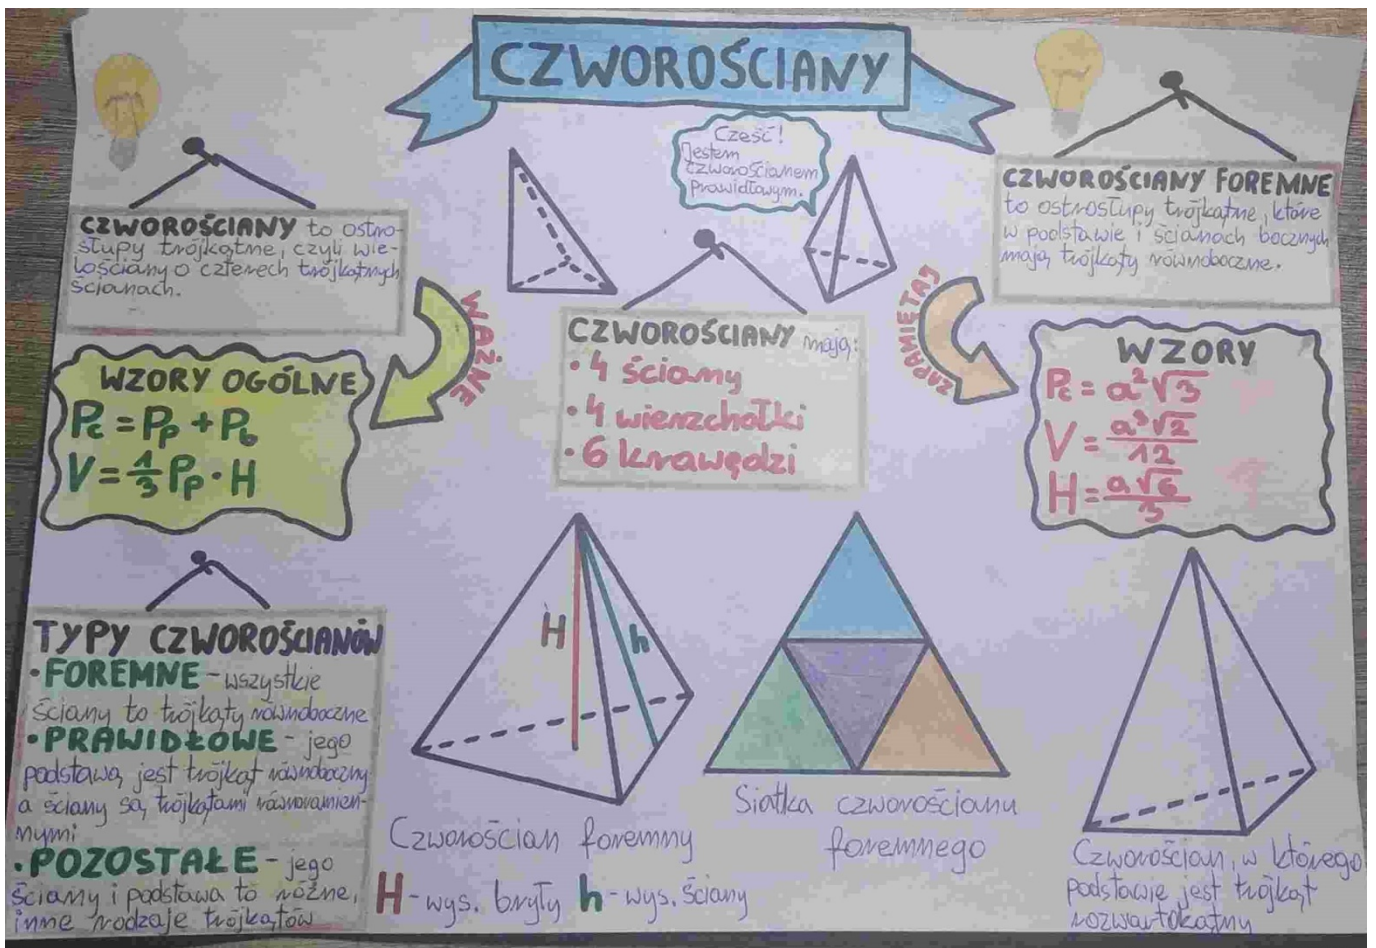 CZWOROŚCIANY
Cześć!
Jestem
czworościanem
prawidłowym.
CZWOROŚCIANY to ostro-
słupy trójkątne, czyli wie-
lościany o czterech trójkątnych
ścianach.
WAŻNE
WZORY OGÓLNE
Pc = Pp + Pb
V = 1/3 Pp · H
CZWOROŚCIANY mają:
• 4 ściany
• 4 wierzchołki
• 6 krawędzi
CZWOROŚCIANY FOREMNE
to ostrosłupy trójkątne, które
w podstawie i ścianach bocznych
mają trójkąty równoboczne.
ZAPAMIĘTAJ
WZORY
Pc = a²√3
V = a³√2/12
H = a√6/3
TYPY CZWOROŚCIANÓW
• FOREMNE - wszystkie
ściany to trójkąty równoboczne
• PRAWIDŁOWE - jego
podstawą jest trójkąt równoboczny
a ściany są trójkątami równoramien-
nymi
• POZOSTAŁE - jego
ściany i podstawa to różne,
inne rodzaje trójkątów
H
h
Czworościan foremny
H - wys. bryły h - wys. ściany
Siatka czworościanu
foremnego
Czworościan, w którego
podstawie jest trójkąt
rozwartokątny